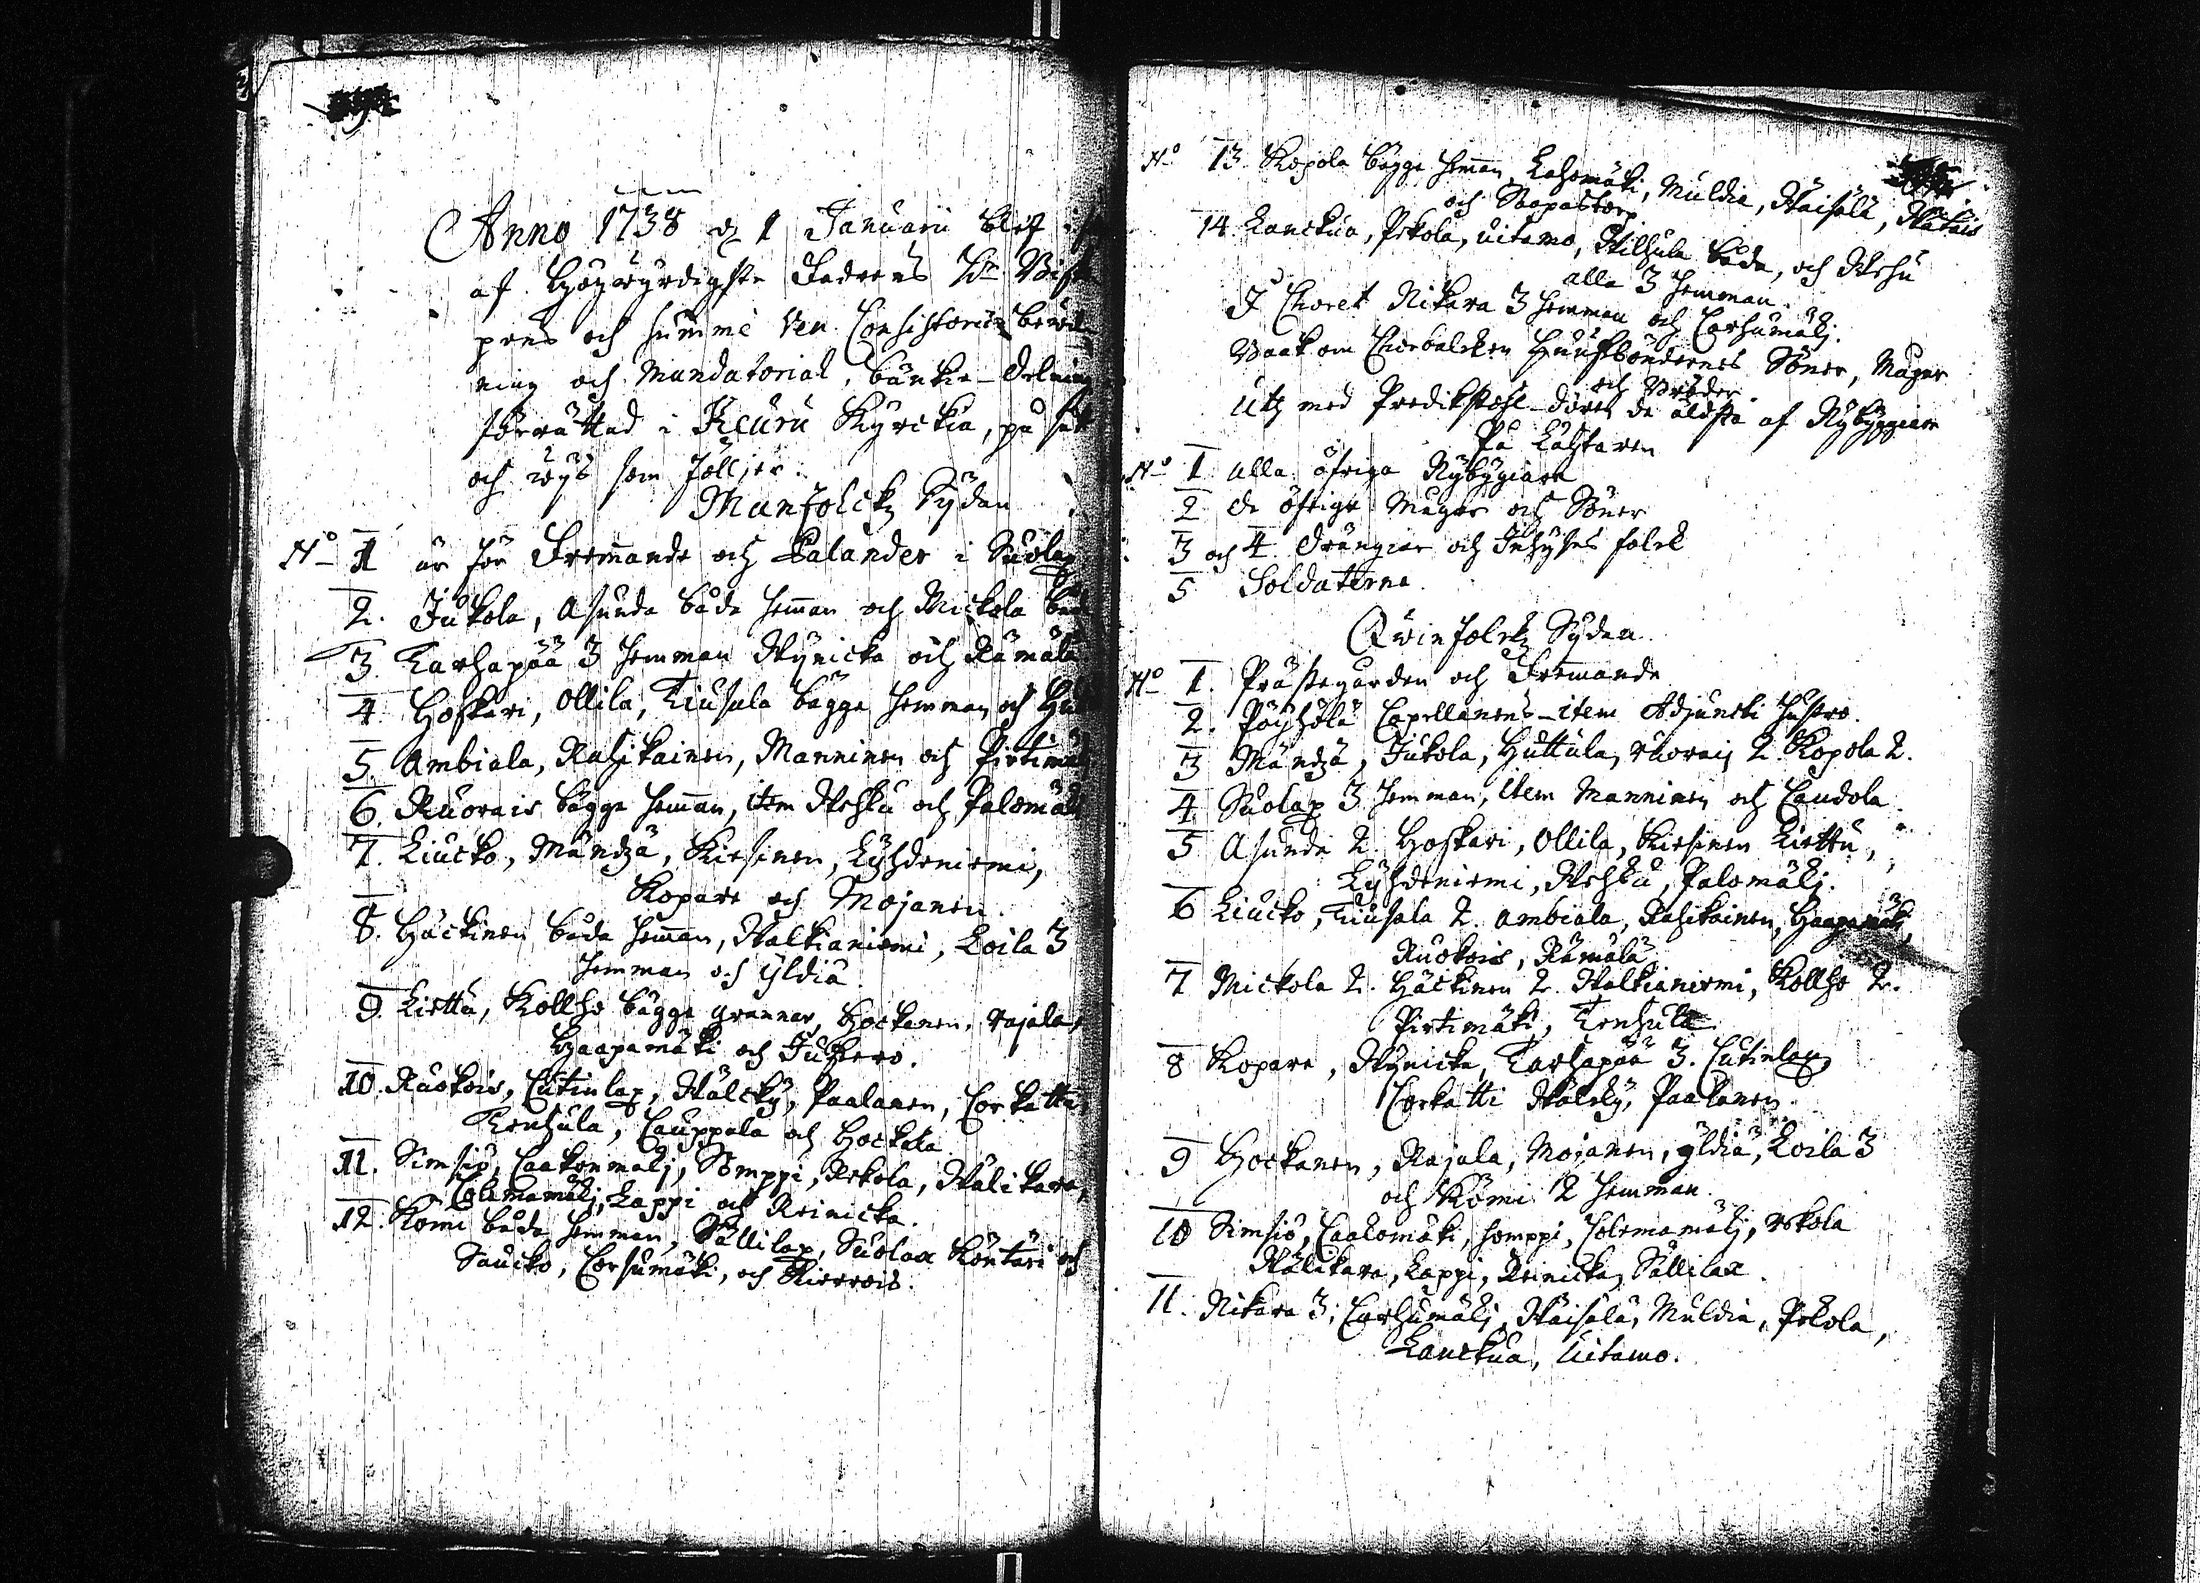 Anno 1738 d 1 Januarii blef
af Högwyrdigste Fadrens Hr Bisk
pens och summe Ven. Consistorii bewil
ning och Mandatorial, bänkie-delning
förrättad i Keuru Kyrckia, på sätt
och wijs som följer.
Manfolckz Sÿdan
No 1 är för Fremande och Palander i Suolax
2. Jukola, Asunda båda heman och Mickola
3 Tarhapää 3 hemman Wÿnicka och Rämälä
4 Hoskari, Ollila, Tiusala bägge hemman och
5. Ambiala, Rasikainen, Manninen och Pirtimäki
6. Ruorais bägge heman, item Weska och Palomäki
7. Liucko, Mändzä, Kiesinen, Lÿhdeniemi,
Kopare och Mojanen.
8. Häckinen båda heman, Walkianiemi, Loila 3
hemman och Yldiä.
9. Liettu, Kollho bägge grannar, Hockanen, Rajala,
Haapamäki och Jukkero.
10. Ruokois, Cutinlax, Wälckÿ, Paalanen, Corkatti,
Tenhula, Cauppala och Hockala
11. Simsiö, Caakonmäkj, Somppi, Rekola, Wälikara,
Colemamäkj, Lappi och Reinicka.
12. Kömi båda hemman, Sällilax, Suolax Köntäri och
Saucko, Corhumäki, och Kierrois.
No 13 Kopola bägge heman, Lahomäki, Muldia, Wäisälä,
och Saapastorp
14. Lanckua, Pekola, Uitamo, Wilhula båda, och Wehu
alla 3 hemman.
I Choret Rikara 3 hemman och Carhumäkj.
Baak om Chorbalcken Huusbondernes Söner, Mager
och Bröder.
Utj med Predikstohl-dören de äldsta af Nybÿggiare
På Lächtaren
No 1 alla öfriga Nÿbÿgiare
2 de öfrige Mager och Söner
3 och 4 Drängiar och Inhÿses folck
5 Soldaterna.
Qwinfolckz Sÿdan.
No 1. Prästegården och Fremande
2. Pöÿhölä Capellanens-item Adjuncti Hustro.
3 Mändzä, Jukola, Huttula, Ruorais 2. Kopola 2.
4 Suolax 3 hemman, item Manninen och Caudola.
5 Asunda 2. Hoskari, Ollila, Kiesinen Liettu,
Lÿhdeniemi, Weska, Palomäkj.
6 Liucko, Tiusala 2. Ambiala, Rasikainen, Haapamäki,
Ruokois, Rämälä
7 Mickola 2. Häckinen 2. Walkianiemi, Kollho 2.
Pirtimäki, Tenhula
8 Kopare, Wÿnicka, Tarhapää 3. Cutinlax
Corkatti Wälckÿ, Paalanen.
9 Hockanen, Rajala, Mojanen, Yldiä, Loila 3
och Kömi 2 hemman.
10 Simsiö, Caakomäki, Somppi, Colemamäkj, Rekola
Wälikara, Lappi, Reinicka, Sällilax.
11. Rikara 3, Carhumäkj, Wäisälä, Muldia, Pekola,
Lanckua, Uitamo.